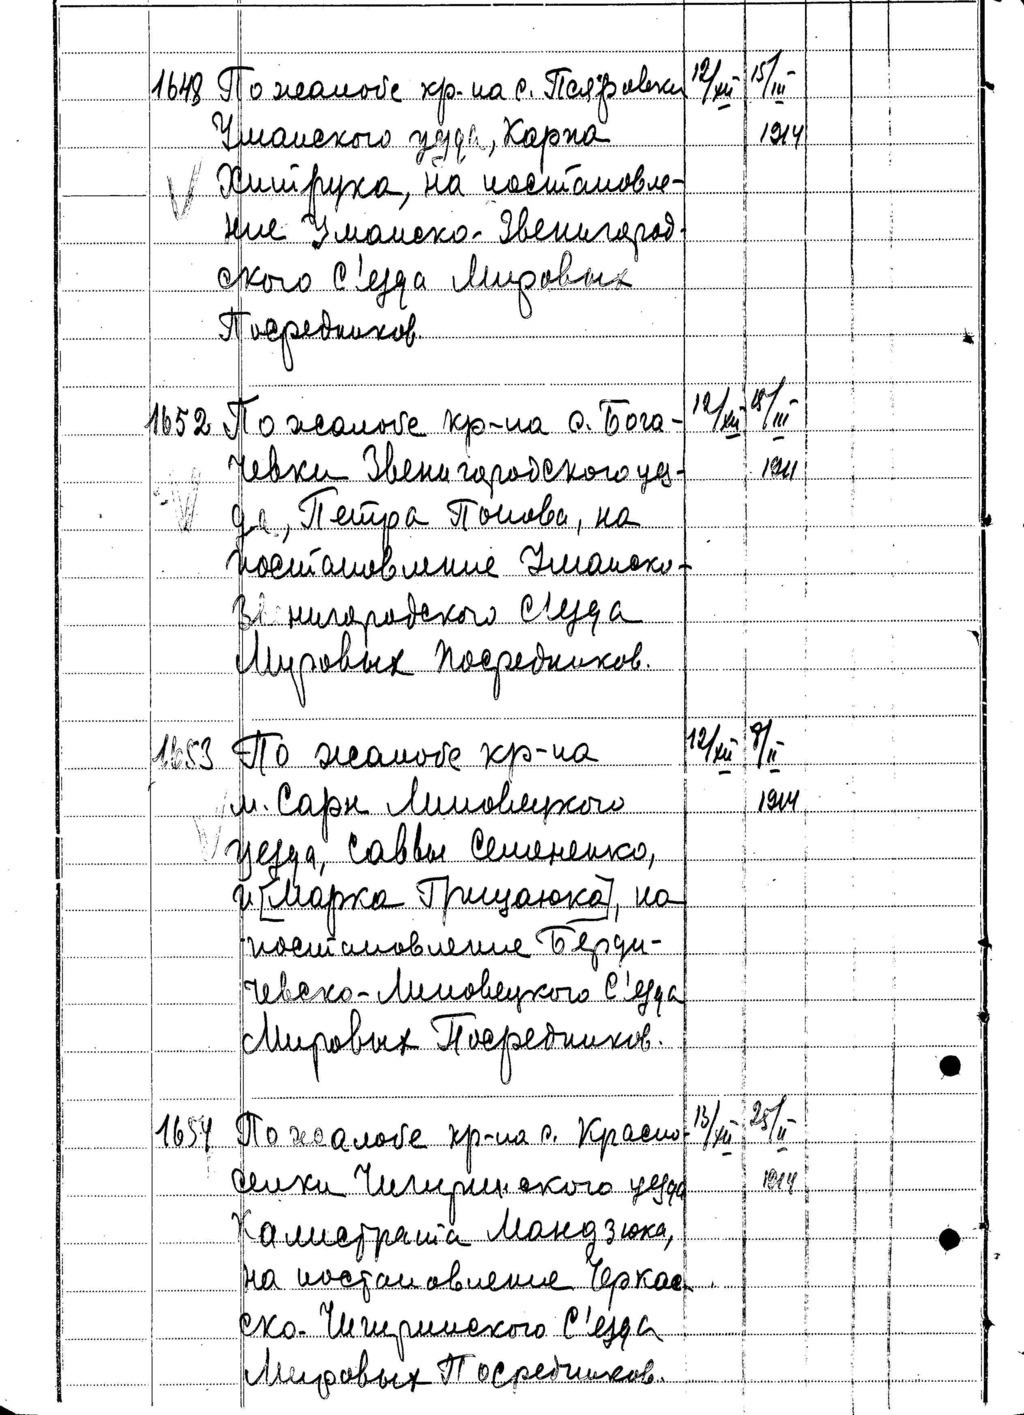 1648 По жалобе кр-на с. 12/XII 15/III
Уманского уезда, Карпа 1914
Хитрука, на постановле-
ние Уманско-Звенигород-
ского С'езда Мировых
Посредников.
1652 По жалобе кр-на с. Бога- 12/XII /III
чевки Звенигородского уез-
да, Петра Попова, на
постановление Уманско-
Звенигородского С'езда
Мировых Посредников.
1653 По жалобе кр-на 12/XII 8/II
м. Сарн Липовецкого 1914
уезда, Саввы Семененко,
и [Марка Грицаюка], на
постановление Берди-
чевско-Липовецкого С'езда
Мировых Посредников.
1654 По жалобе кр-на с. Красно- 13/XII 25/II
селки Чигиринского уезда 1914
Калистрата Мандзюка,
на постановление Черкас
ско-Чигиринского С'езда
Мировых Посредников.